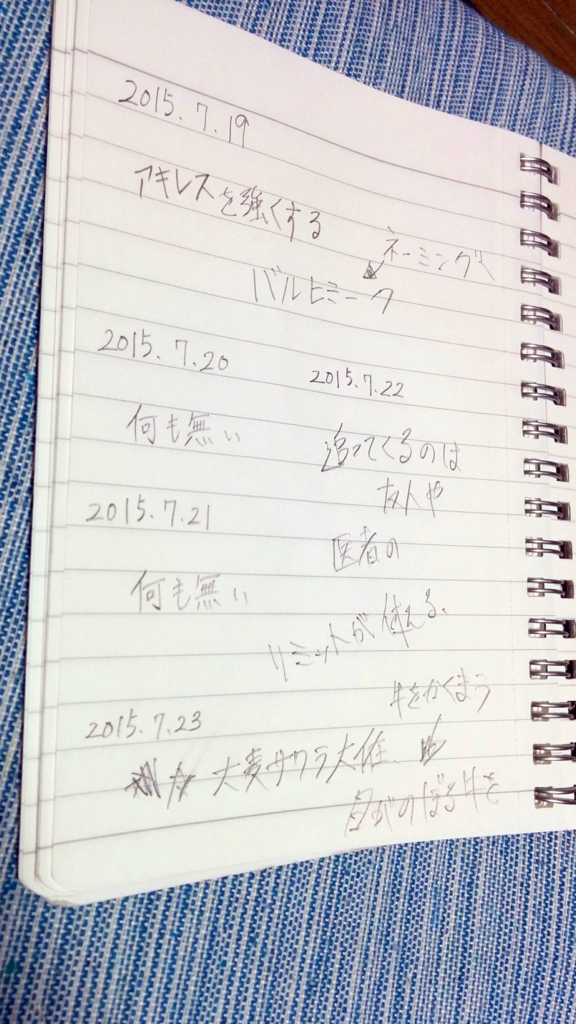 2015.7.19
アキレスを強くする
ネーミング
バルヒミーク
2015.7.20
何も無い
2015.7.21
何も無い
2015.7.22
追ってくるのは
友人や
医者の
リミットが
2015.7.23
大麦サクラ大
牛をかくまう
のぼる牛を